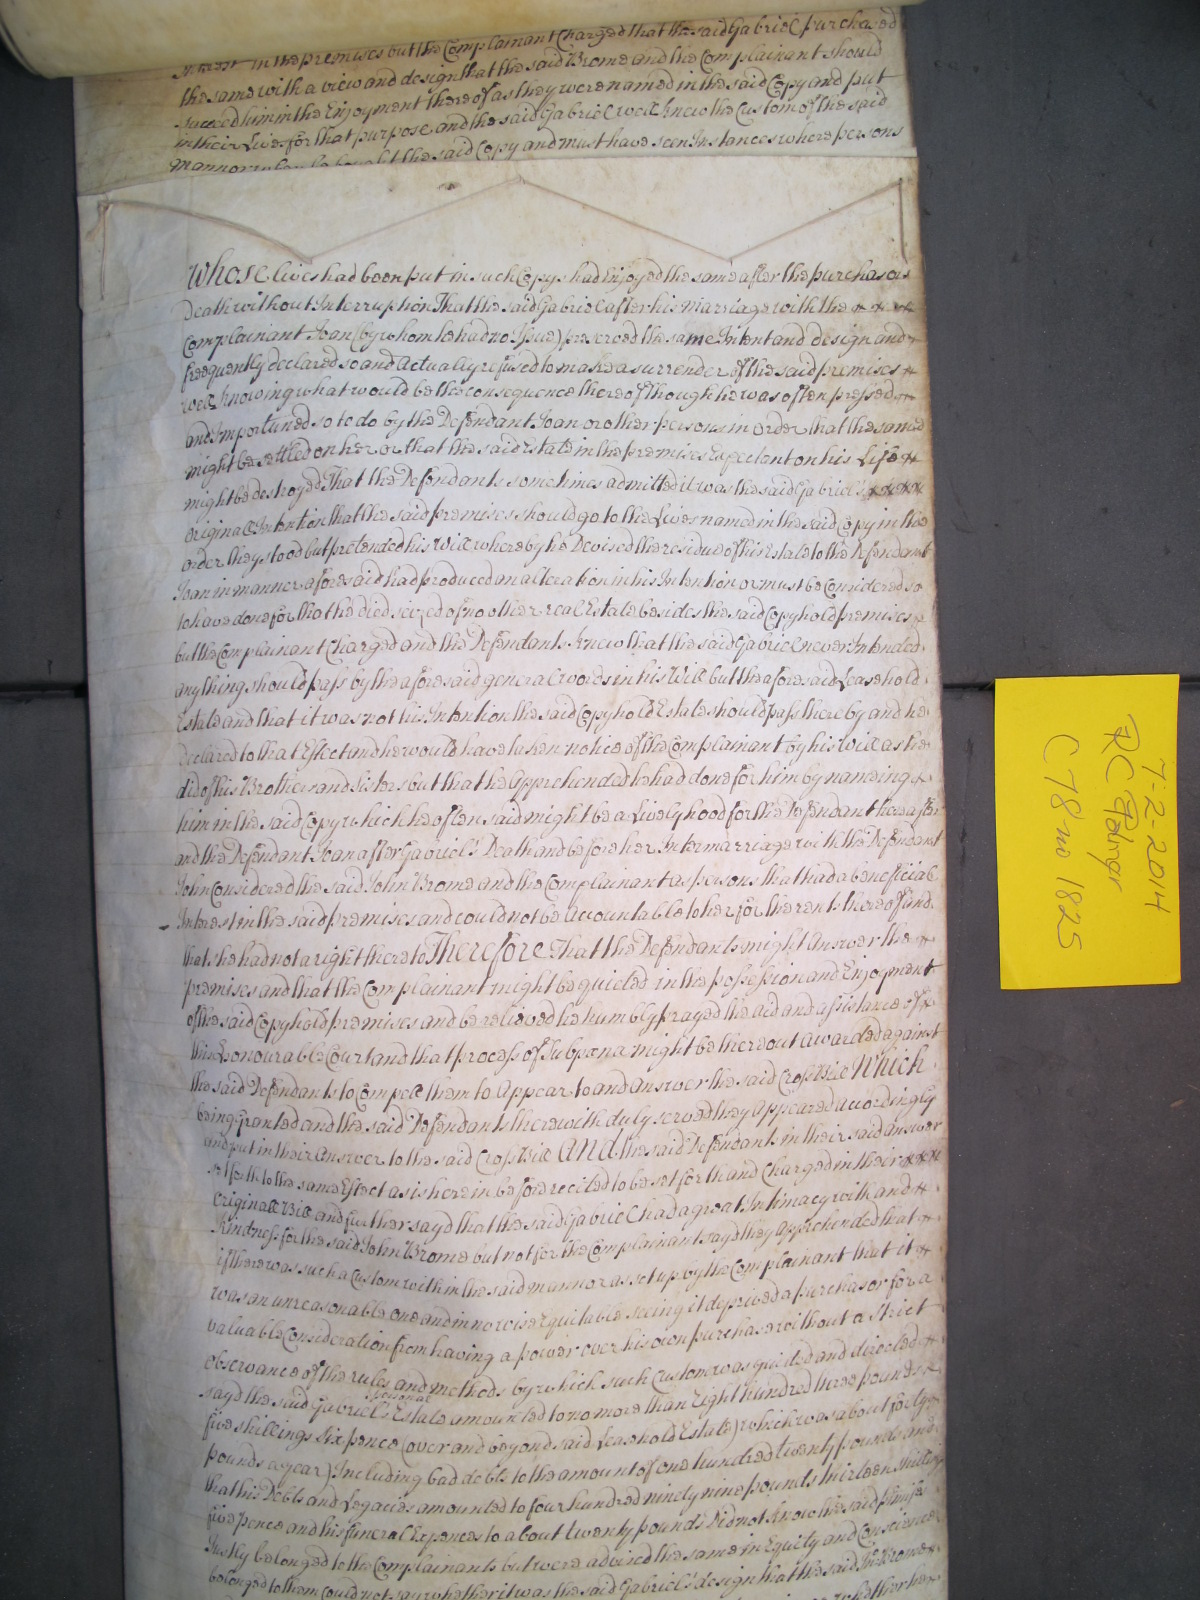 Interest in the premises but the Complainant Charged that the said Gabriel purchased
the same with a view and design that the said Brome and the Complainant should
succeed him in the Enjoyment thereof as they were named in the said Copy and put
in their Lives for that purpose and the said Gabriel well knew the Custom of the said
Mannor the said Copy and must have seen Instances where persons
Whose lives had been put in such Copys had Enjoyed the same after the purchasors
Death without Interruption That the said Gabriel after his Marriage with the
Complainant Joan (by whom he had no Issue) persevered the same Intent and design and
frequently declared so and actually refused to make a surrender of the said premises
well knowing what would be the consequence thereof though he was often pressed
and Importuned so to do by the Defendant Joan or other persons in order that the same
might be settled on her or that the said Estate in the premises Expectant on his Life
might be destroyed That the Defendants sometimes admitted it was the said Gabriel's
original Intention that the said premises should go to the Lives named in the said Copy in the
order they stood but pretended his Will whereby he Devised the residue of his Estate to the Defendant
Joan in manner aforesaid had produced an alteration in his Intention or must be Considered so
to have done for that he died seized of no other real Estate besides the said Copyhold premises
but the Complainant Charged and the Defendants knew that the said Gabriel never Intended
any thing should pass by the aforesaid general words in his Will but the aforesaid Leasehold
Estate and that it was not his Intention the said Copyhold Estate should pass thereby and he
declared to that Effect and he would have taken notice of the Complainant by his Will as he
did of his Brothers and Sisters but that he Apprehended he had done for him by nameing
him in the said Copy which he often said might be a Livelyhood for the Defendant hereafter
and the Defendant Joan after Gabriel's Death and before her Intermarriage with the Defendant
John Considered the said John Brome and the Complainant as persons that had a beneficial
Interest in the said premises and could not be accountable to her for the rents thereof and
that she had not a right thereto Therefore That the Defendants might answer the
premises and that the Complainant might be quieted in the possession and Enjoyment
of the said Copyhold premises and be relieved he humbly prayed the aid and assistance of
this Honourable Court and that process of Subpœna might be thereout awarded against
the said Defendants to Compell them to Appear to and answer the said Cross Bill Which
being granted and the said Defendants therewith duly served they appeared accordingly
and put in their Answer to the said Cross Bill And the said Defendants in their said answer
set forth to the same Effect as is herein before recited to be set forth and Charged in their
Original Bill and further sayd that the said Gabriel had a great Intimacy with and
kindness for the said John Brome but not for the Complainant sayd they apprehended that
if there was such a Custom within the said mannor as set up by the Complainant that it
was an unreasonable one and in no wise Equitable seeing it deprived a purchasor for a
valuable Consideration from having a power over his own purchase without a strict
observance of the rules and methods by which such Custom was guided and directed
sayd the said Gabriel's personal Estate amounted to no more than Eight hundred three pounds
five shillings six pence (over and beyond said Leasehold Estate) which was about forty
pounds a year) Including bad debts to the amount of one hundred twenty pounds and
that his Debts and Legacies amounted to four hundred ninety nine pounds thirteen shillings
five pence and his funeral Expences to about twenty pounds Did not know the said premises
Justly belonged to the Complainants but were advised the same in Equity and Conscience
belonged to them could not say whether it was the said Gabriel's design that the said Jn. Brome
7-2-2014
RC Palmer
C 78 no 1825